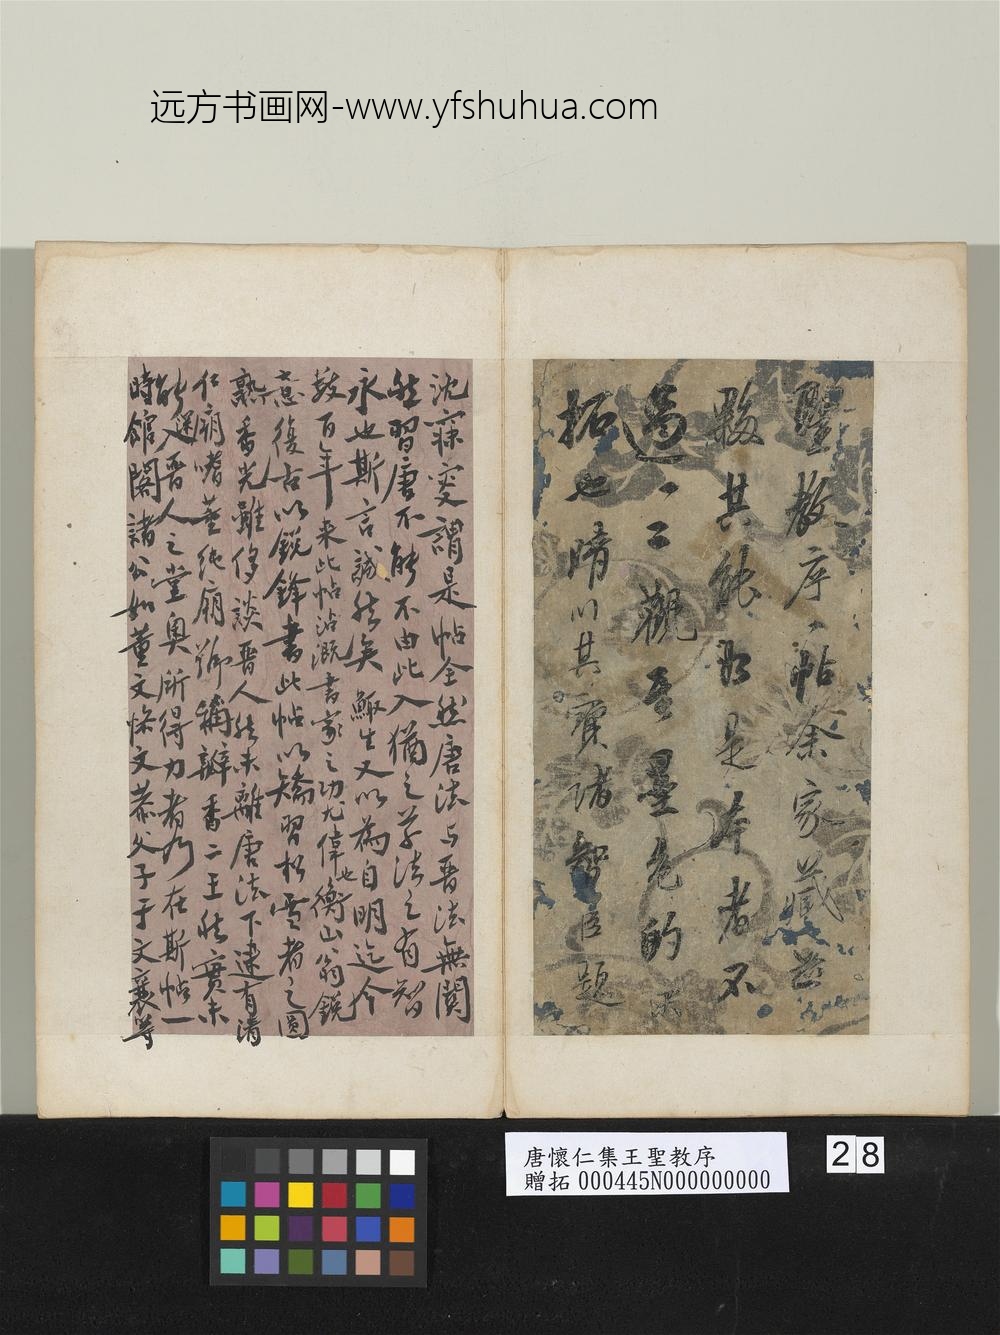 远方书画网-www.yfshuhua.com
聖教序帖余家藏茲
數其能如是本者不
過一二觀其墨色的
拓也晴川其寶諸智臣題
沈寐叟謂是帖全然唐法与晋法無關
然習唐不能不由此入猶之草法之有智
永也斯言誠然矣鯫生又以為自明迄今
數百年来此帖沾溉書家之功尤偉也衡山翁銳
意復古以銳鋒書此帖以矯習松雪者之圓
熟香光雖侈談晋人然未離唐法下逮有清
仁廟嗜董純廟稱瓣香二王然實未
能邁晋人之堂奥所得力者乃在斯帖一
時館閣諸公如董文恪文恭父子于文襄等
唐懷仁集王聖教序
贈拓 000445N000000000
28